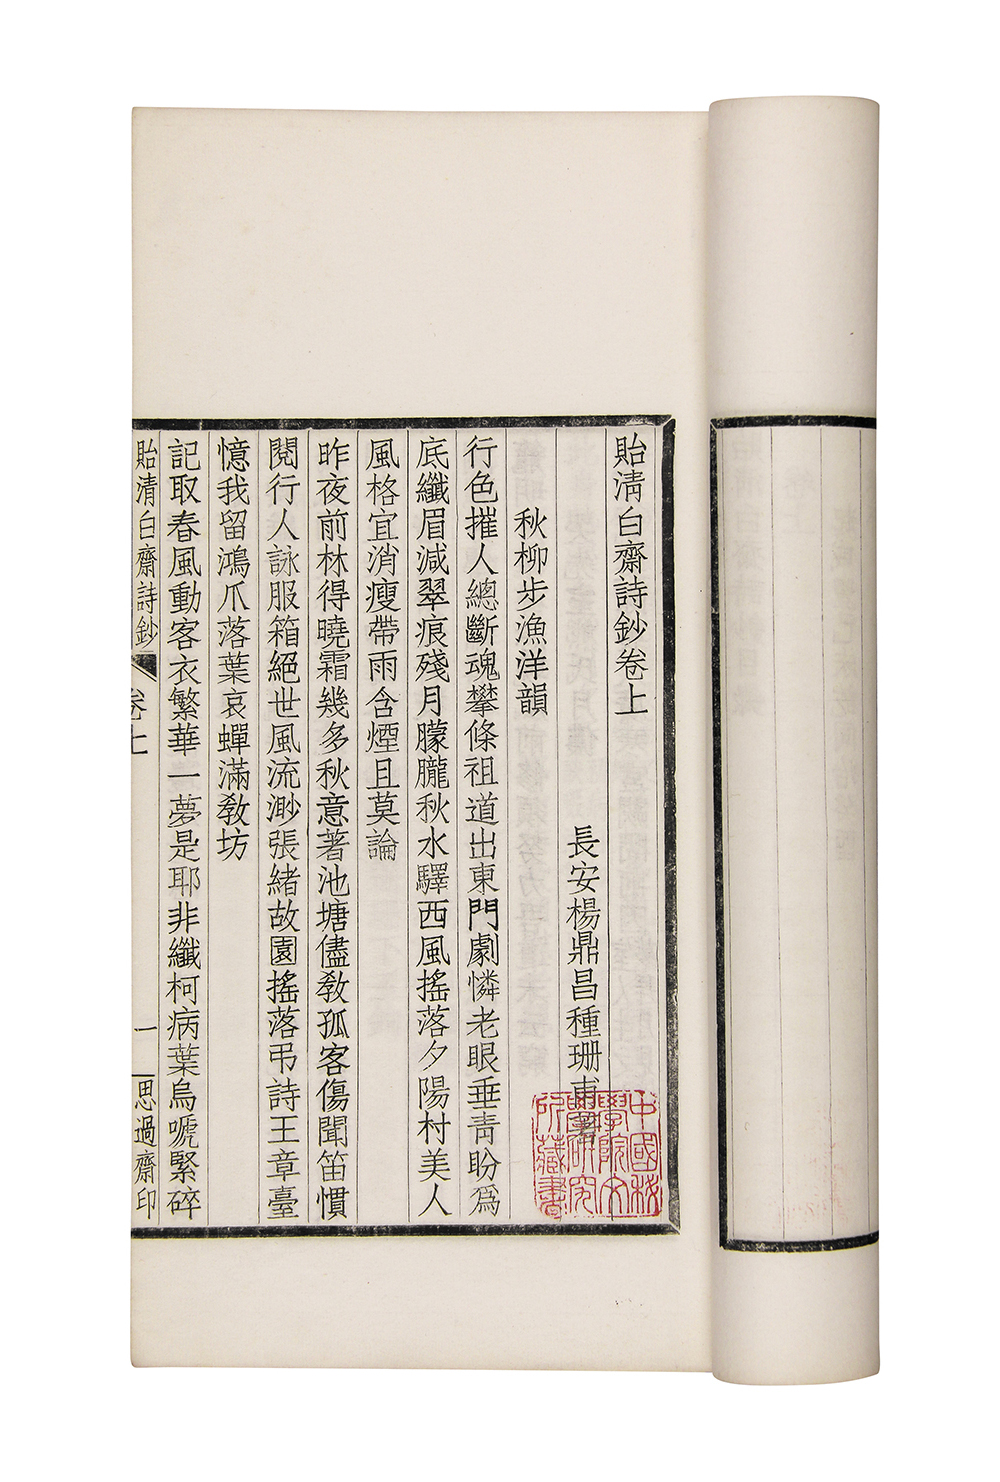 貽清白齋詩鈔卷上
長安楊鼎昌種珊甫著
秋柳步漁洋韻
行色摧人總斷魂攀條祖道出東門劇憐老眼垂青盼爲
底纖眉減翠痕殘月朦朧秋水驛西風搖落夕陽村美人
風格宜消瘦帶雨含煙且莫論
昨夜前林得曉霜幾多秋意著池塘儘教孤客傷聞笛慣
閱行人詠服箱絕世風流渺張緒故園搖落弔詩王章臺
憶我留鴻爪落葉哀蟬滿教坊
記取春風動客衣繁華一夢是耶非纖柯病葉烏嗁緊碎
貽清白齋詩鈔
卷上
一
思過齋印
中國科
學院文
學研究
所藏書